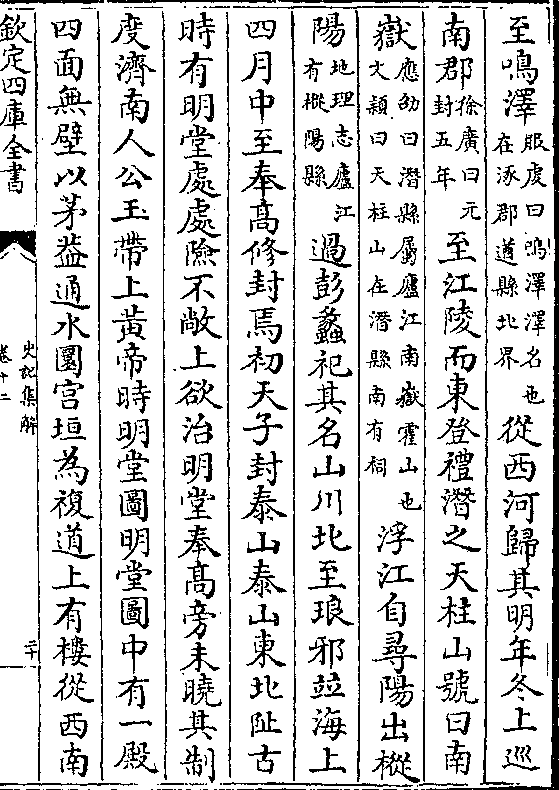 至鳴澤服䖍曰鳴澤澤名也在涿郡遒縣北界從西河歸其明年冬上巡
南郡徐廣曰元封五年至江陵而東登禮潛之天柱山號曰南
嶽應劭曰潛縣屬廬江南嶽霍山也文穎曰天柱山在潛縣南有祠浮江自尋陽出樅
陽地理志廬江有樅陽縣過彭蠡祀其名山川北至琅邪竝海上
四月中至奉高修封焉初天子封泰山泰山東北阯古
時有明堂處處險不敞上欲治明堂奉高旁未曉其制
度濟南人公玊帶上黄帝時明堂圖明堂圖中有一殿
四面無壁以茅葢通水圜宫垣為複道上有樓從西南
欽定四庫全書
史記集解
卷十二
二十